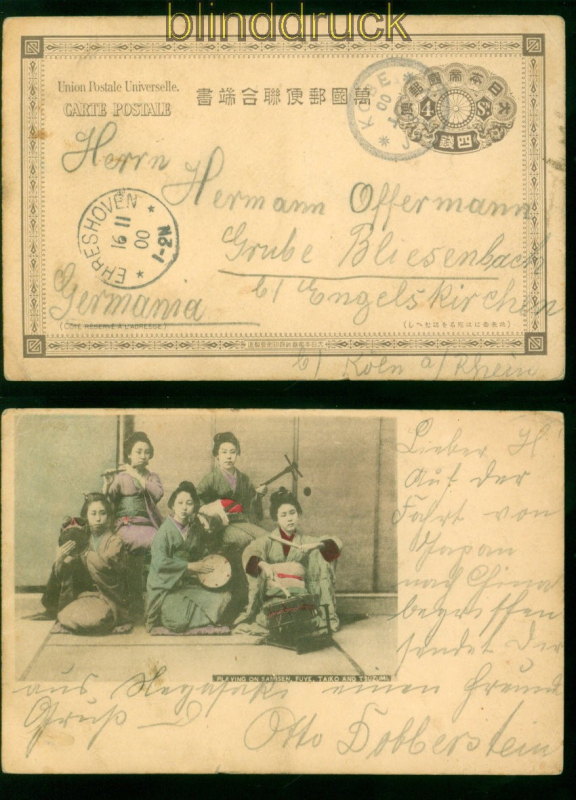 blinddruck
Union Postale Universelle.
CARTE POSTALE
書端合聯便郵國萬
大日本帝國郵便
4 Sn.
四錢
KOBE
Herrn
Hermann Offermann
Grube Bliesenbach
b/ Engelskirchen
Germania
b/ Köln a/Rhein
EHRESHOVEN
16 11
00
1-2N
(CÔTÉ RÉSERVÉ À L'ADRESSE)
Lieber H
Auf der
Fahrt von
Japan
nach China
begriffen
sendet Dir
aus Negasaki einen Freund
Gruß
Otto Dobberstein
PLAYING ON SAMISEN, FUYE, TAIKO AND TSUZUMI.